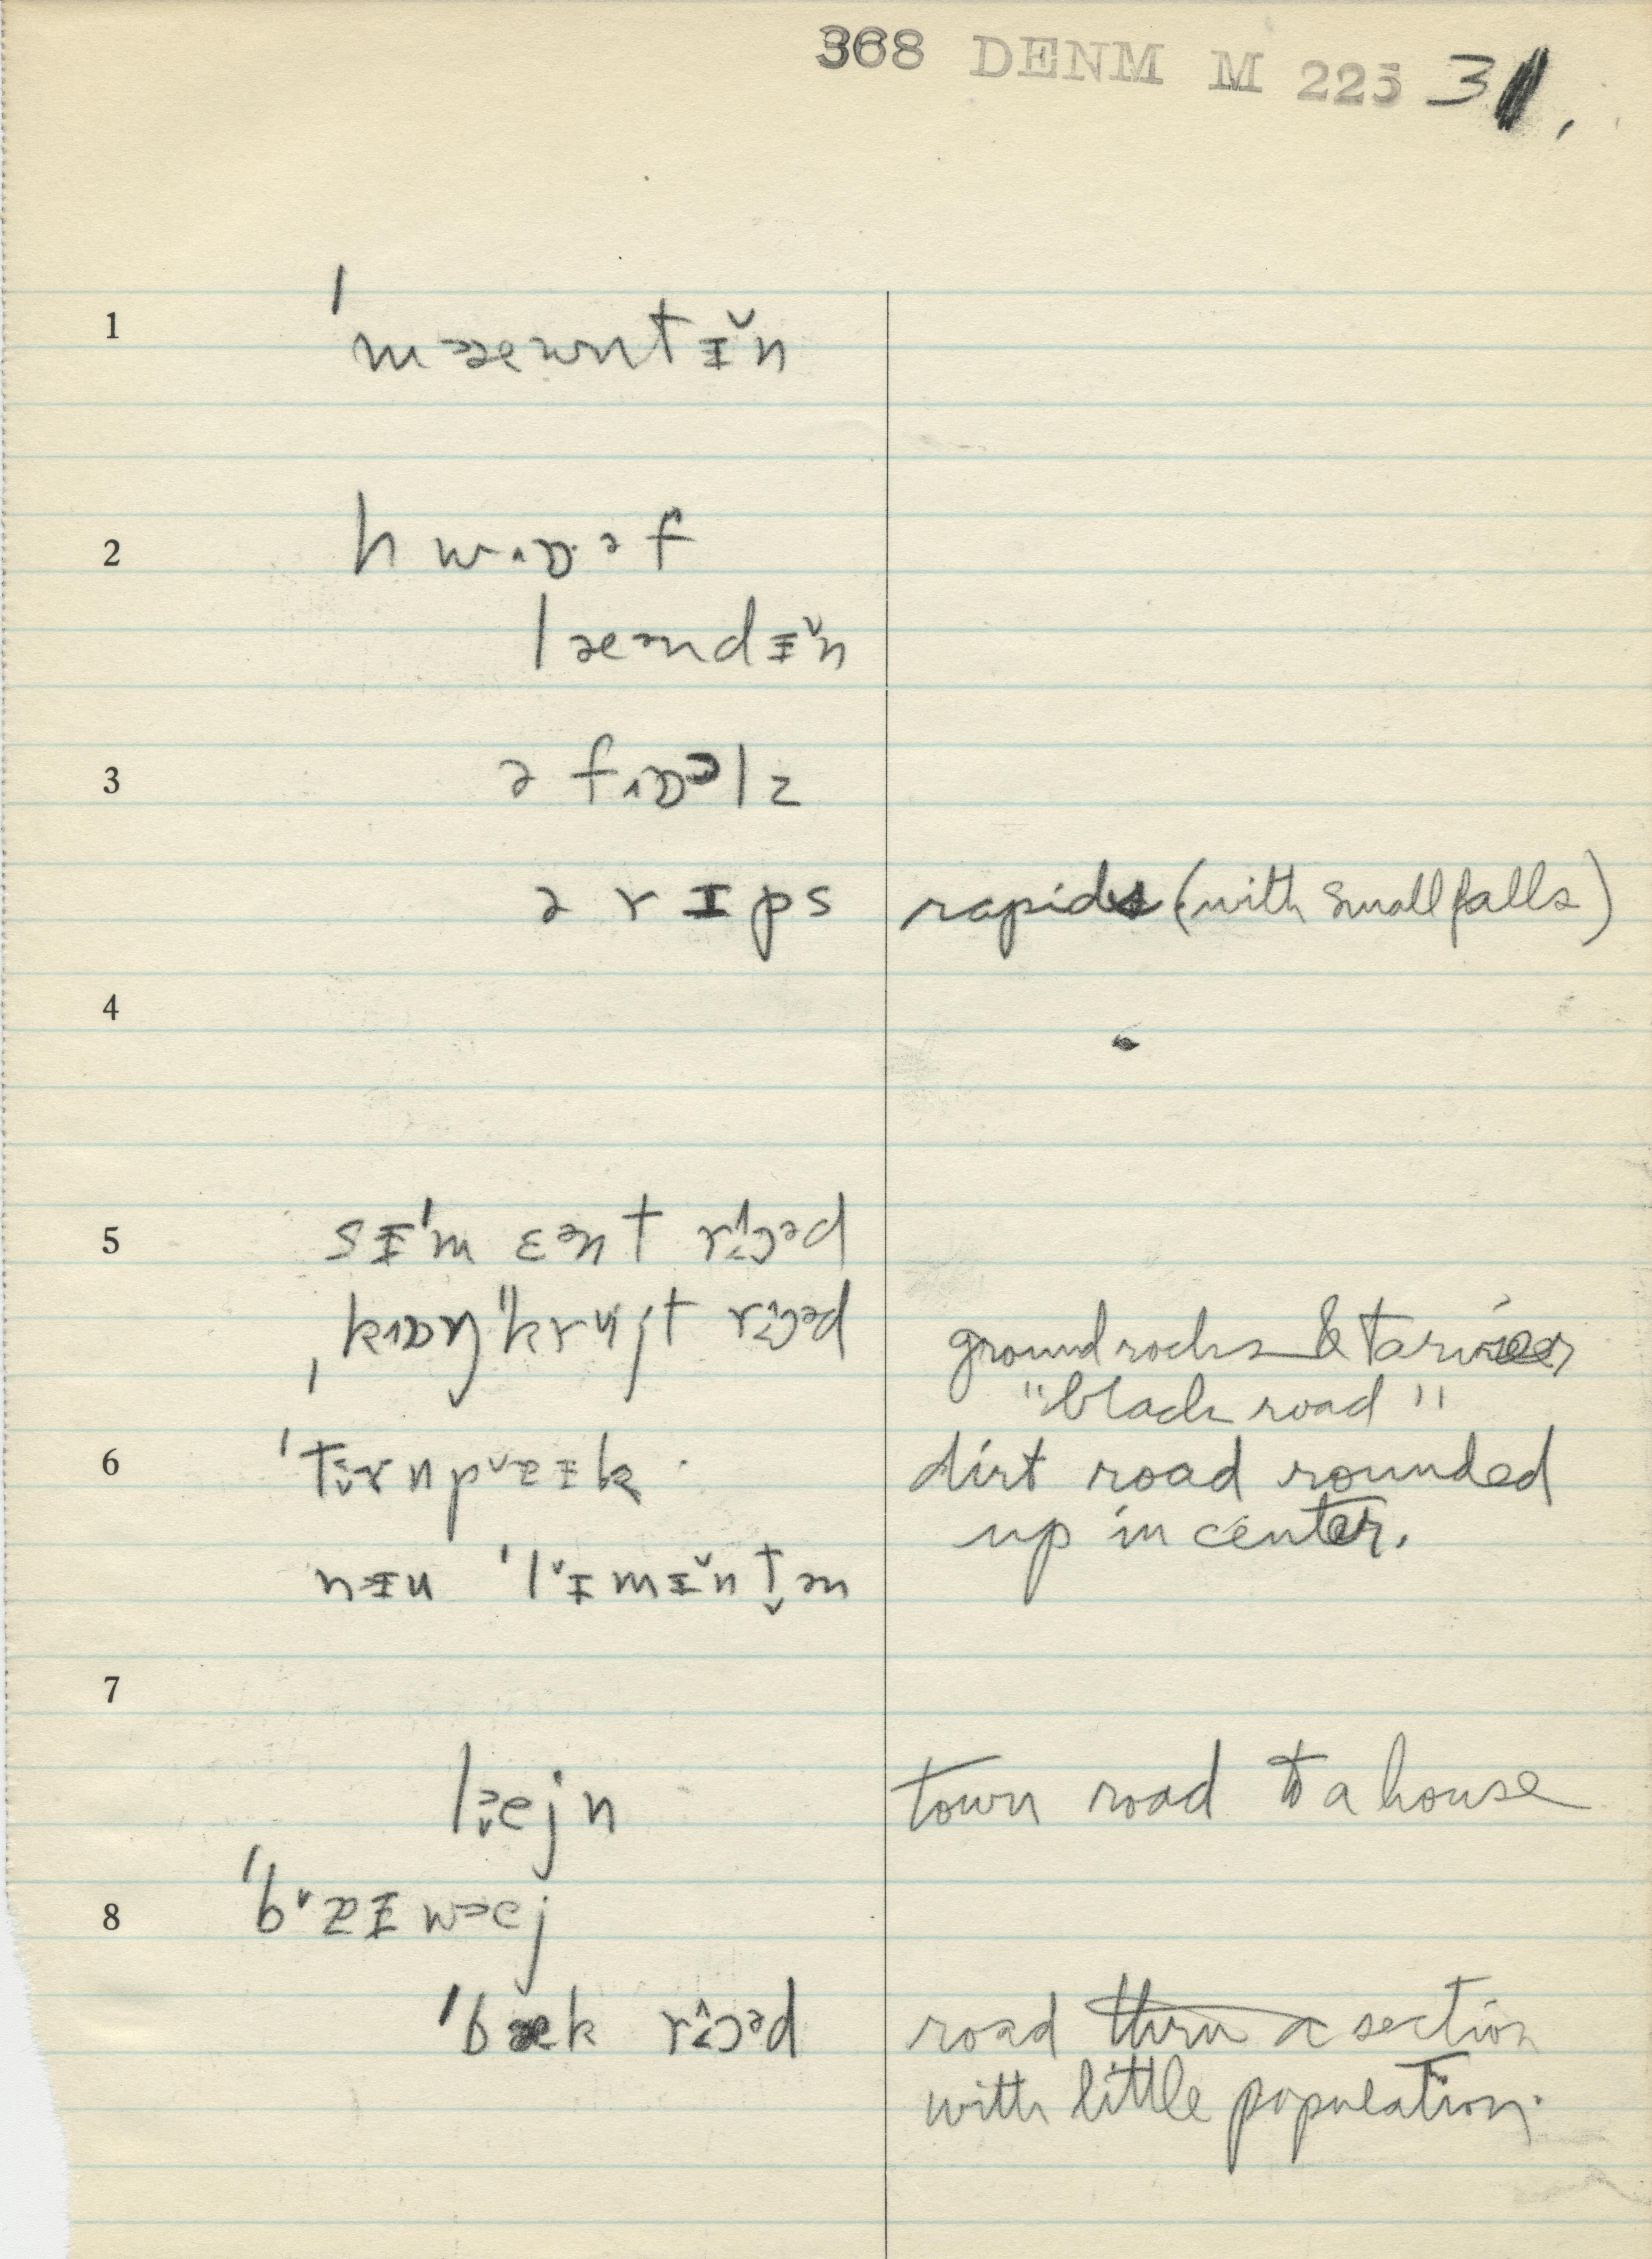 368 DENM M 225 31,
1 ˈmɜæwntɪ̆n
2 hwɒəf
læəndɪ̆n
3 ə fɒəlz
ə rɪps rapids (with small falls)
4
5 sɪˈmɛənt rɔəd
ˌkɒŋˈkrijt rɔəd ground rocks &
"black road"
6 ˈtɜrnpɐɪk dirt road rounded
up in center.
nɪu ˈlɪmɪ̆ntən
7
lɜejn town road to a house
8 ˈbɐɪwɜej
ˈbæk rɔəd road thru a section
with little population.